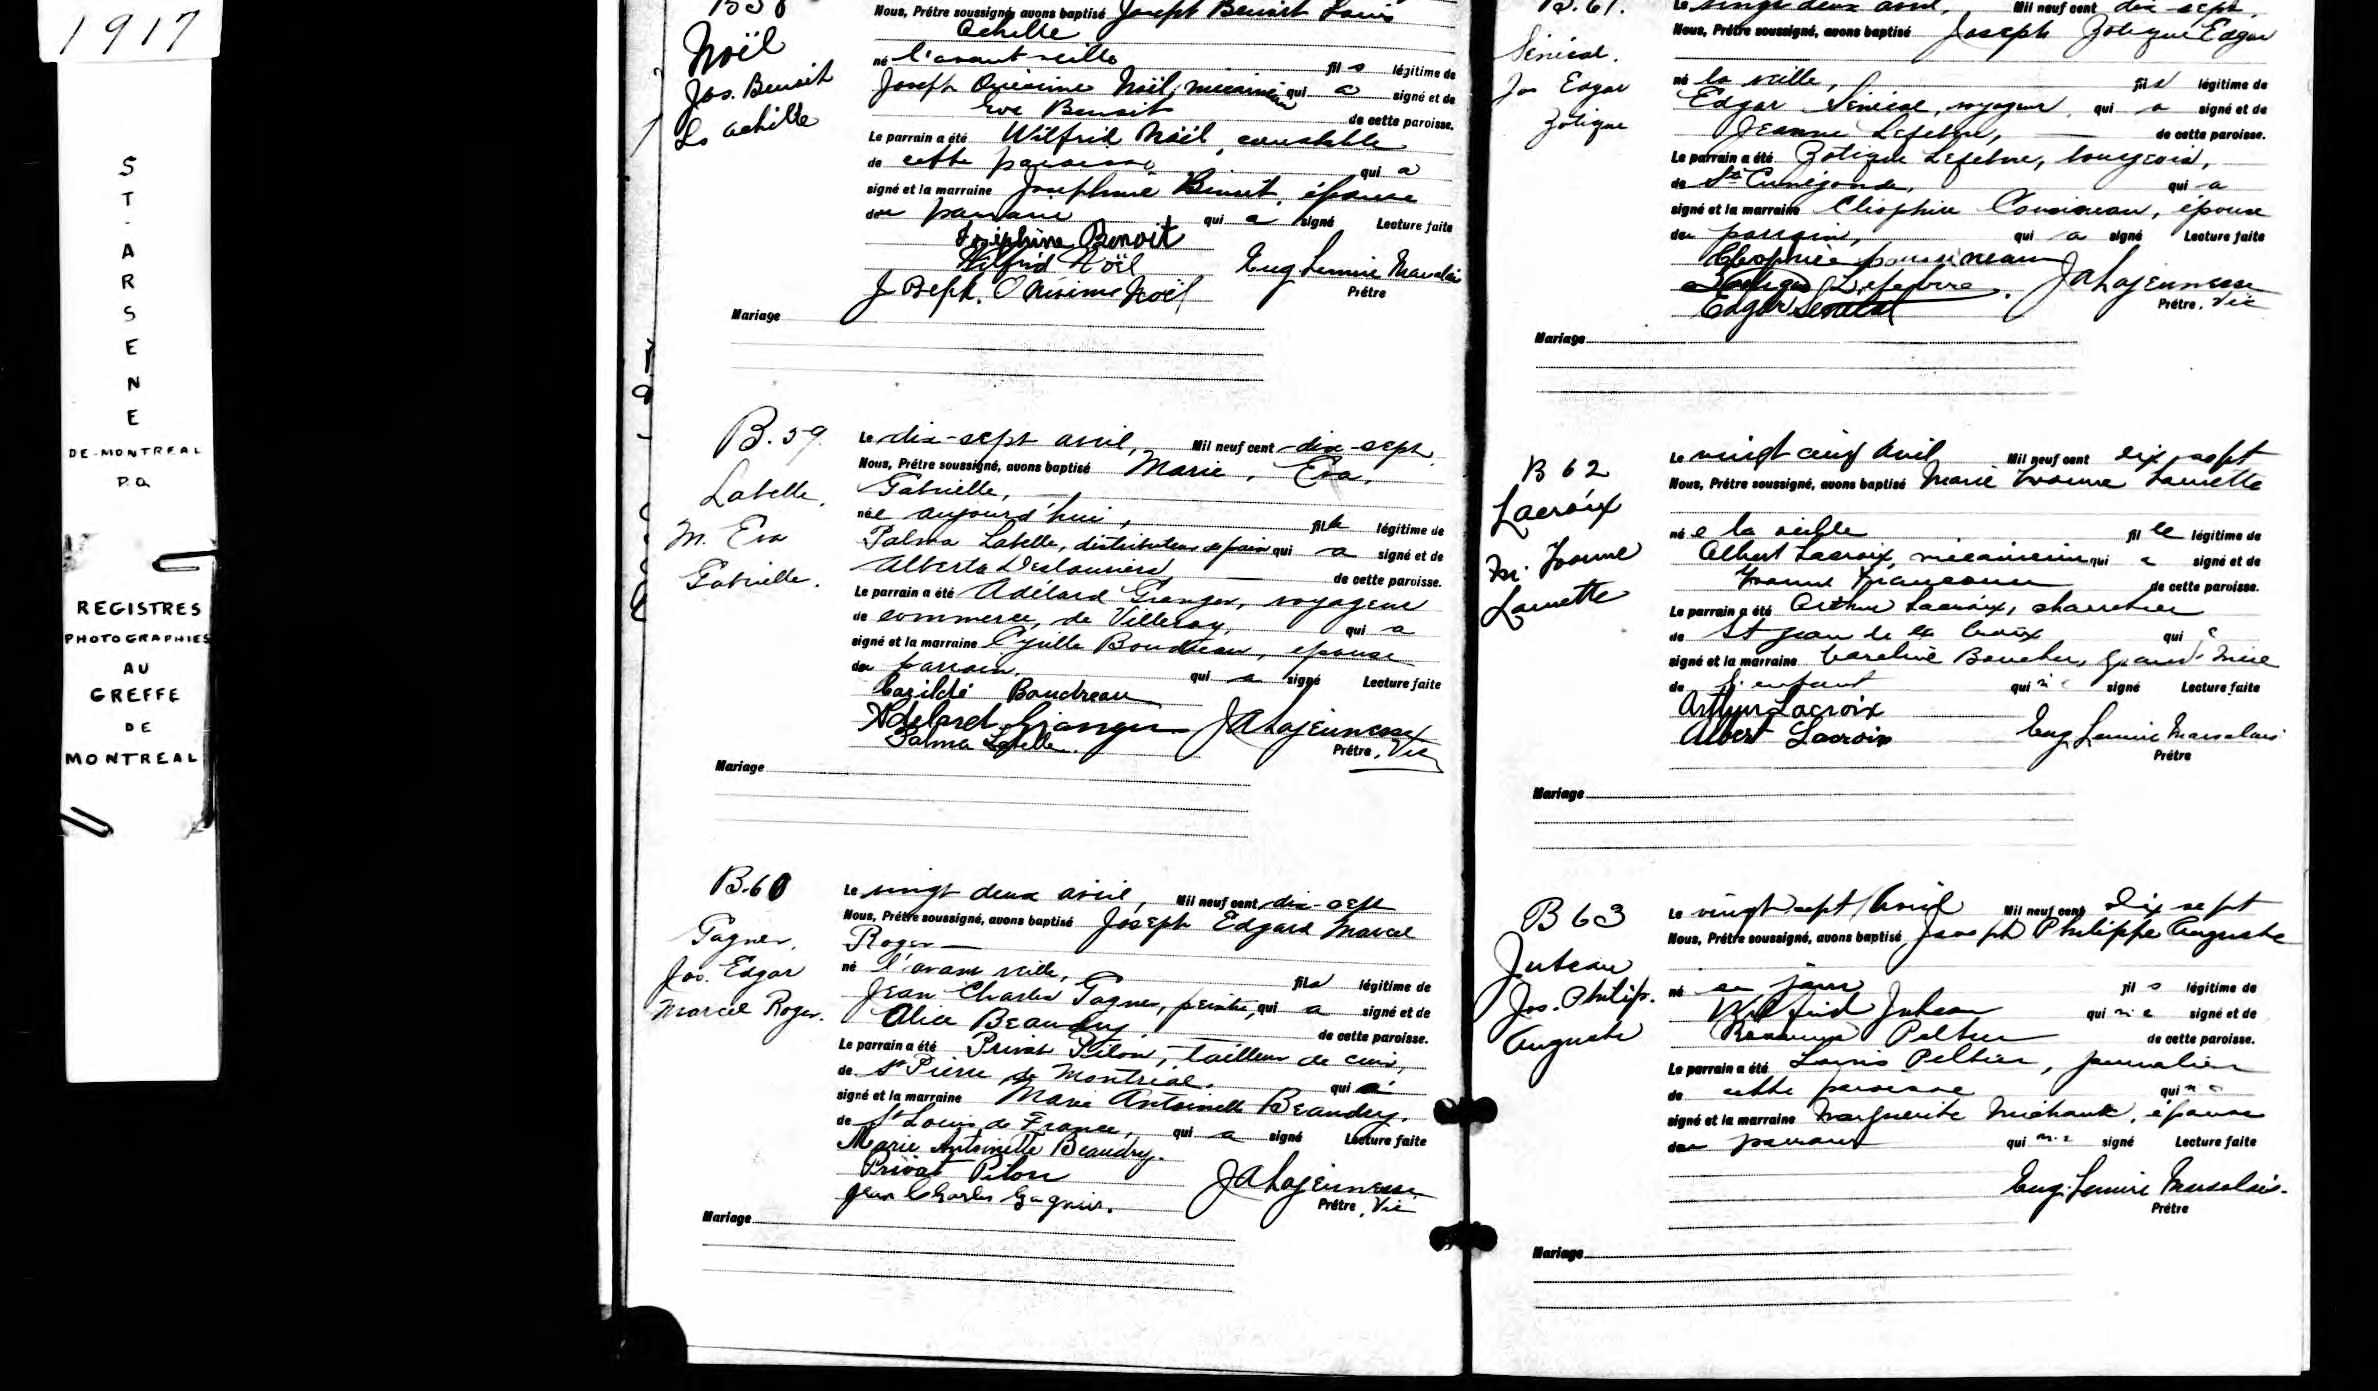 1917
ST-ARSENE
DE-MONTREAL
P.Q.
REGISTRES
PHOTOGRAPHIES
AU
GREFFE
DE
MONTREAL
B58
Noël
Jos. Benoit
Ls Achille
Nous, Prêtre soussigné, avons baptisé Joseph Benoit Louis
Achille
né l'avant veille fils légitime de
Joseph Onésime Noël, mécanicien qui a signé et de
Eve Benoit de cette paroisse.
Le parrain a été Wilfrid Noël, constable
de cette paroisse qui a
signé et la marraine Josephine Benoit, épouse
du parrain qui a signé Lecture faite
Joséphine Benoit
Wilfrid Noël Eug Lemire Marsolais
Joseph. Onésime Noël Prêtre
Mariage
B.59.
Labelle.
M. Eva
Gabrielle.
Le dix-sept avril, Mil neuf cent dix-sept.
Nous, Prêtre soussigné, avons baptisé Marie, Eva,
Gabrielle,
née aujourd'hui, fille légitime de
Palma Labelle, distributeur de pain qui a signé et de
Alberta Deslauriers de cette paroisse.
Le parrain a été Adélard Granger, voyageur
de commerce, de Villeray, qui a
signé et la marraine Boudreau, épouse
du parrain, qui a signé Lecture faite
Cazildé Boudreau
Adelard Granger JALajeunesse
Palma Labelle. Prêtre, Vic
Mariage
B.60
Gagner,
Jos. Edgar
Marcel Roger.
Le vingt deux avril, Mil neuf cent dix-sept
Nous, Prêtre soussigné, avons baptisé Joseph Edgard Marcel
Roger
né l'avant veille, fils légitime de
Jean Charles Gagner, peintre, qui a signé et de
Alice Beaudry de cette paroisse.
Le parrain a été Privat Pilon, tailleur de cuir,
de St Pierre de Montréal. qui a
signé et la marraine Marie Antoinette Beaudry.
de St Louis de France, qui a signé Lecture faite
Marie Antoinette Beaudry.
Privat Pilon JALajeunesse
Jean Charles Gagnier. Prêtre, Vic
Mariage
B.61.
Sénécal.
Jos Edgar
Zotique
Le vingt deux avril, Mil neuf cent dix-sept,
Nous, Prêtre soussigné, avons baptisé Joseph Zotique Edgar
né la veille, fils légitime de
Edgar Sénécal, voyageur, qui a signé et de
Jeanne Lefebvre, de cette paroisse.
Le parrain a été Zotique Lefebvre, bourgeois,
de Ste Cunégonde, qui a
signé et la marraine Cléophire Cousineau, épouse
du parrain, qui a signé Lecture faite
Cousineau
Zotique Lefebvre. JALajeunesse
Edgar Senecal Prêtre. Vic
Mariage
B 62
Lacroix
M. Yvonne
Laurette
Le vingt cinq Avril Mil neuf cent dix sept
Nous, Prêtre soussigné, avons baptisé Marie Yvonne Laurette
née la veille fille légitime de
Albert Lacroix, mécanicien qui a signé et de
Yvonne Francoeur de cette paroisse.
Le parrain a été Arthur Lacroix, charretier
de St Jean de la Croix qui a
signé et la marraine Caroline Boucher, grand-mère
de l'enfant qui n'a signé Lecture faite
Arthur Lacroix
Albert Lacroix Eug Lemire Marsolais
Prêtre
Mariage
B 63
Juteau
Jos. Philip.
Auguste
Le vingt sept Avril Mil neuf cent dix sept
Nous, Prêtre soussigné, avons baptisé Joseph Philippe Auguste
né ce jour fils légitime de
Wilfrid Juteau qui n'a signé et de
Peltier de cette paroisse.
Le parrain a été Louis Peltier, journalier
de cette paroisse qui n'a
signé et la marraine Marguerite, épouse
du parrain qui n'a signé Lecture faite
Eug. Lemire Marsolais.
Prêtre
Mariage